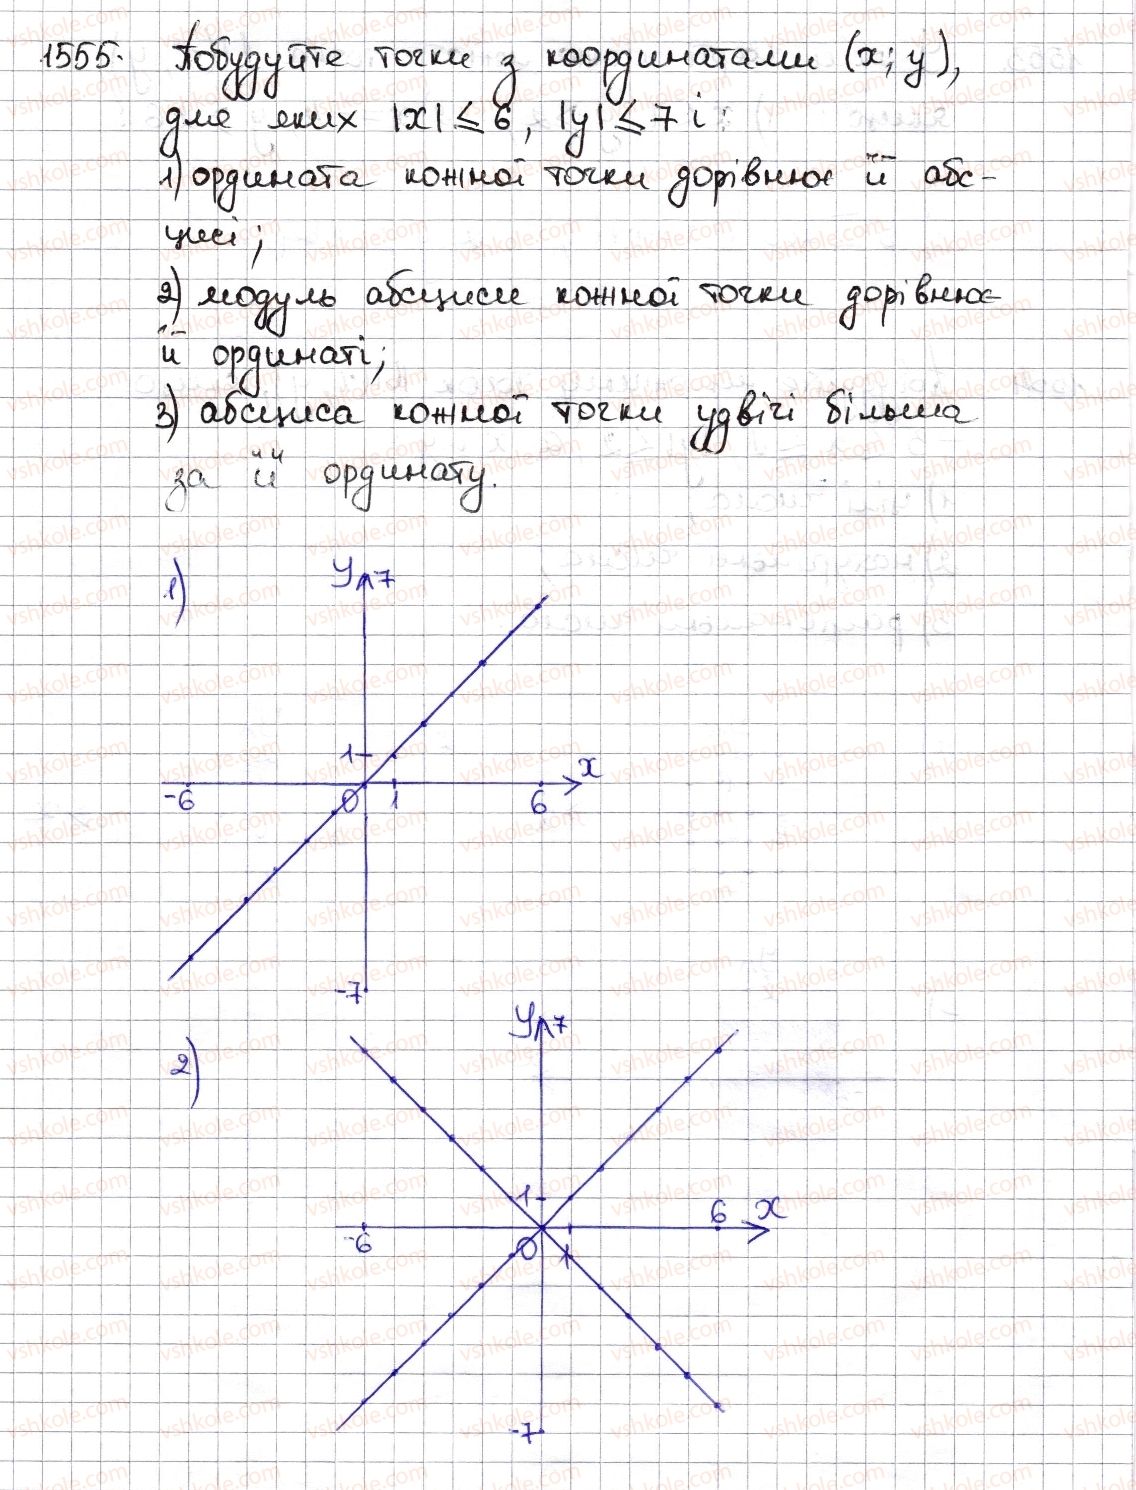 1555. Побудуйте точки з координатами (x; y),
для яких |x| ≤ 6, |y| ≤ 7 і:
1) ордината кожної точки дорівнює її абс-
цисі;
2) модуль абсциси кожної точки дорівнює
її ординаті;
3) абсциса кожної точки удвічі більша
за її ординату.
1)
y 7
1
x
-6 0 1 6
-7
2)
y 7
1
6 x
-6 0 1
-7